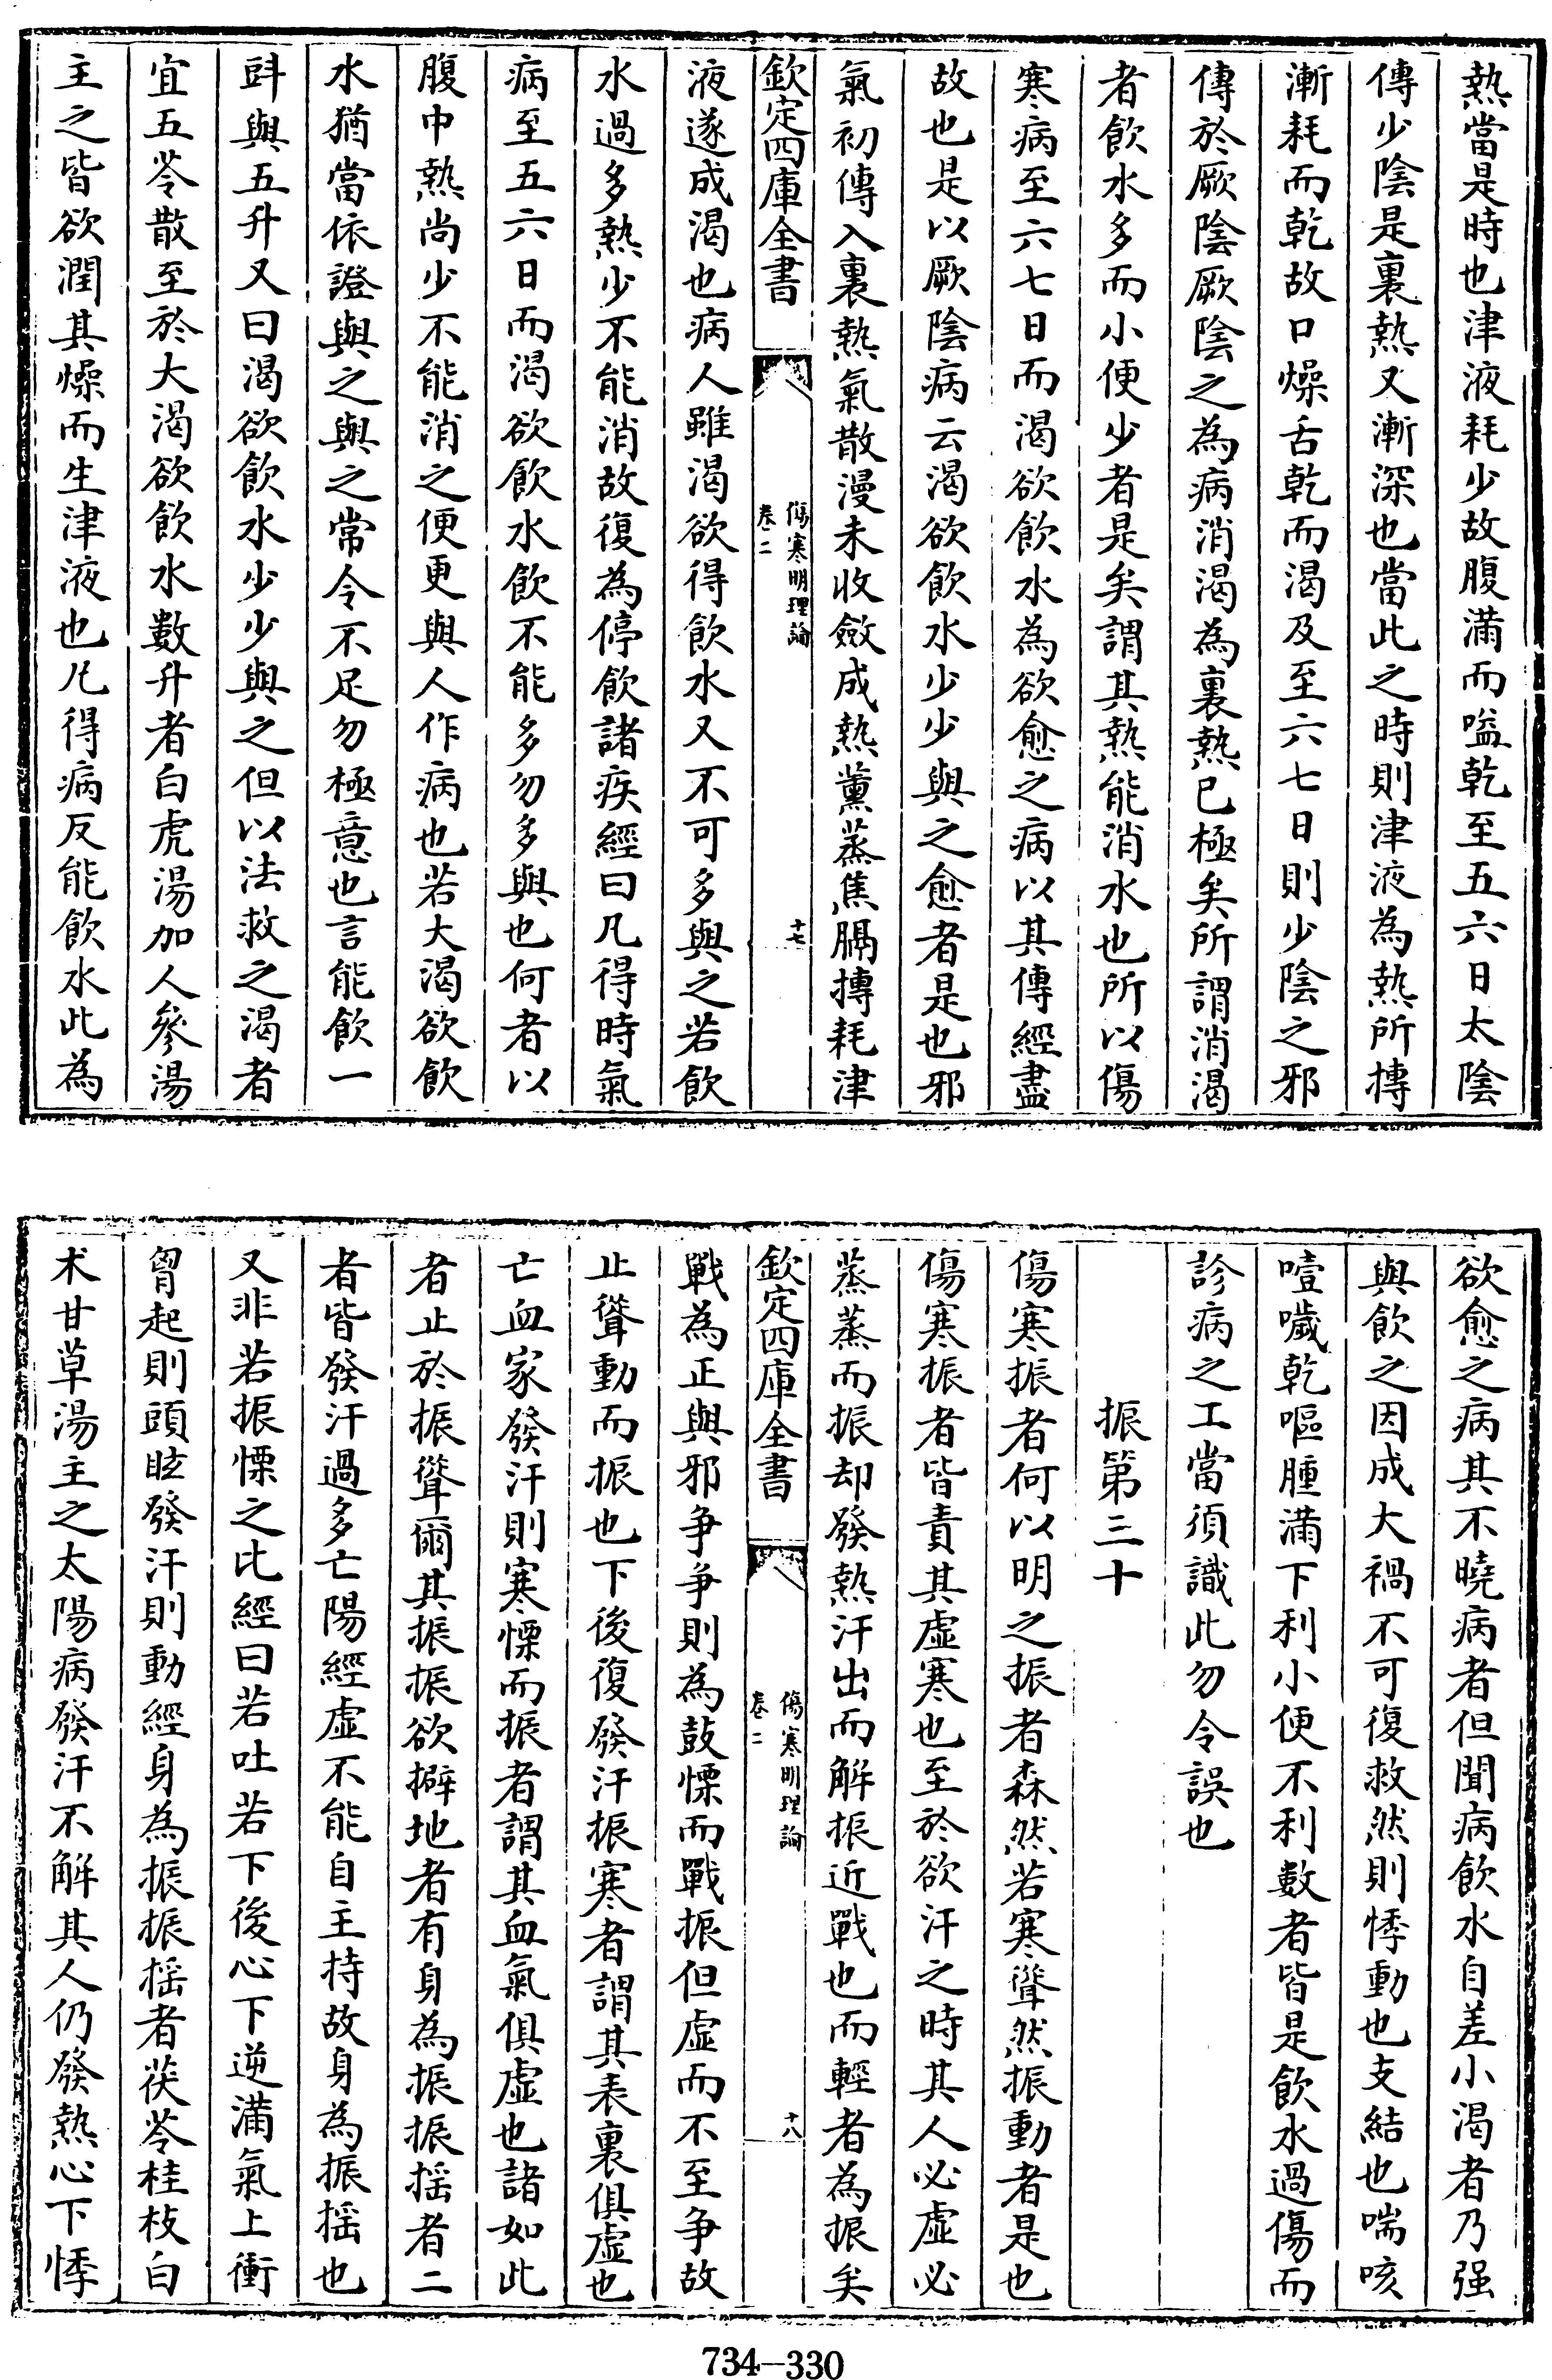 熱當是時也津液耗少故腹滿而嗌乾至五六日太隂
傳少隂是裏熱又漸深也當此之時則津液為熱所搏
漸耗而乾故口燥舌乾而渴及至六七日則少隂之邪
傳於厥隂厥隂之為病消渴為裏熱已極矣所謂消渴
者飲水多而小便少者是矣謂其熱能消水也所以傷
寒病至六七日而渴欲飲水為欲愈之病以其傳經盡
故也是以厥隂病云渴欲飲水少少與之愈者是也邪
氣初傳入裏熱氣散漫未收斂成熱薰蒸焦膈搏耗津
欽定四庫全書
傷寒明理論
卷二
十七
液遂成渴也病人雖渴欲得飲水又不可多與之若飲
水過多熱少不能消故復為停飲諸疾經曰凡得時氣
病至五六日而渴欲飲水飲不能多勿多與也何者以
腹中熱尚少不能消之便更與人作病也若大渴欲飲
水猶當依證與之與之常令不足勿極意也言能飲一
㪷與五升又曰渴欲飲水少少與之但以法救之渴者
宜五苓散至於大渴欲飲水數升者白虎湯加人參湯
主之皆欲潤其燥而生津液也凡得病反能飲水此為
欲愈之病其不曉病者但聞病飲水自差小渴者乃强
與飲之因成大禍不可復救然則悸動也支結也喘咳
噎噦乾嘔腫滿下利小便不利數者皆是飲水過傷而
診病之工當須識此勿令誤也
振第三十
傷寒振者何以明之振者森然若寒聳然振動者是也
傷寒振者皆責其虛寒也至於欲汗之時其人必虛必
蒸蒸而振却發熱汗出而解振近戰也而輕者為振矣
欽定四庫全書
傷寒明理論
卷二
十八
戰為正與邪争争則為鼓慄而戰振但虛而不至争故
止聳動而振也下後復發汗振寒者謂其表裏俱虛也
亡血家發汗則寒慄而振者謂其血氣俱虛也諸如此
者止於振聳爾其振振欲擗地者有身為振振揺者二
者皆發汗過多亡陽經虛不能自主持故身為振揺也
又非若振慄之比經曰若吐若下後心下逆滿氣上衝
胷起則頭眩發汗則動經身為振振揺者茯苓桂枝白
术甘草湯主之太陽病發汗不解其人仍發熱心下悸
734-330